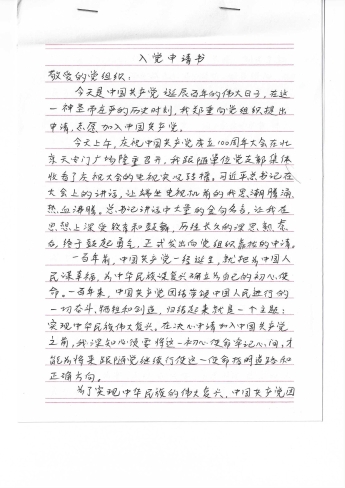 入党申请书
敬爱的党组织:
今天是中国共产党诞辰百年的伟大日子,在这
一神圣而庄严的历史时刻,我郑重向党组织提出
申请,志愿加入中国共产党。
今天上午,庆祝中国共产党成立100周年大会在北
京天安门广场隆重召开,我跟随单位党支部集体
收看了庆祝大会的电视实况转播。习近平总书记在
大会上的讲话,让端坐电视机前的我思潮腾涌、
热血沸腾,总书记讲话中大量的金句名言,让我在
思想上深受教育和鼓舞,历经长久的深思熟虑
后,终于鼓起勇气,正式发出向党组织靠拢的申请。
一百年前,中国共产党一经诞生,就把为中国人
民谋幸福、为中华民族谋复兴确立为自己的初心使
命。一百年来,中国共产党团结带领中国人民进行的
一切奋斗、牺牲和创造,归结起来就是一个主题:
实现中华民族伟大复兴。在决心申请加入中国共产党
之前,我深知必须要将这一初心使命牢记心间,才
能为将来跟随党继续行使这一使命指明道路和
正确方向。
为了实现中华民族的伟大复兴,中国共产党团